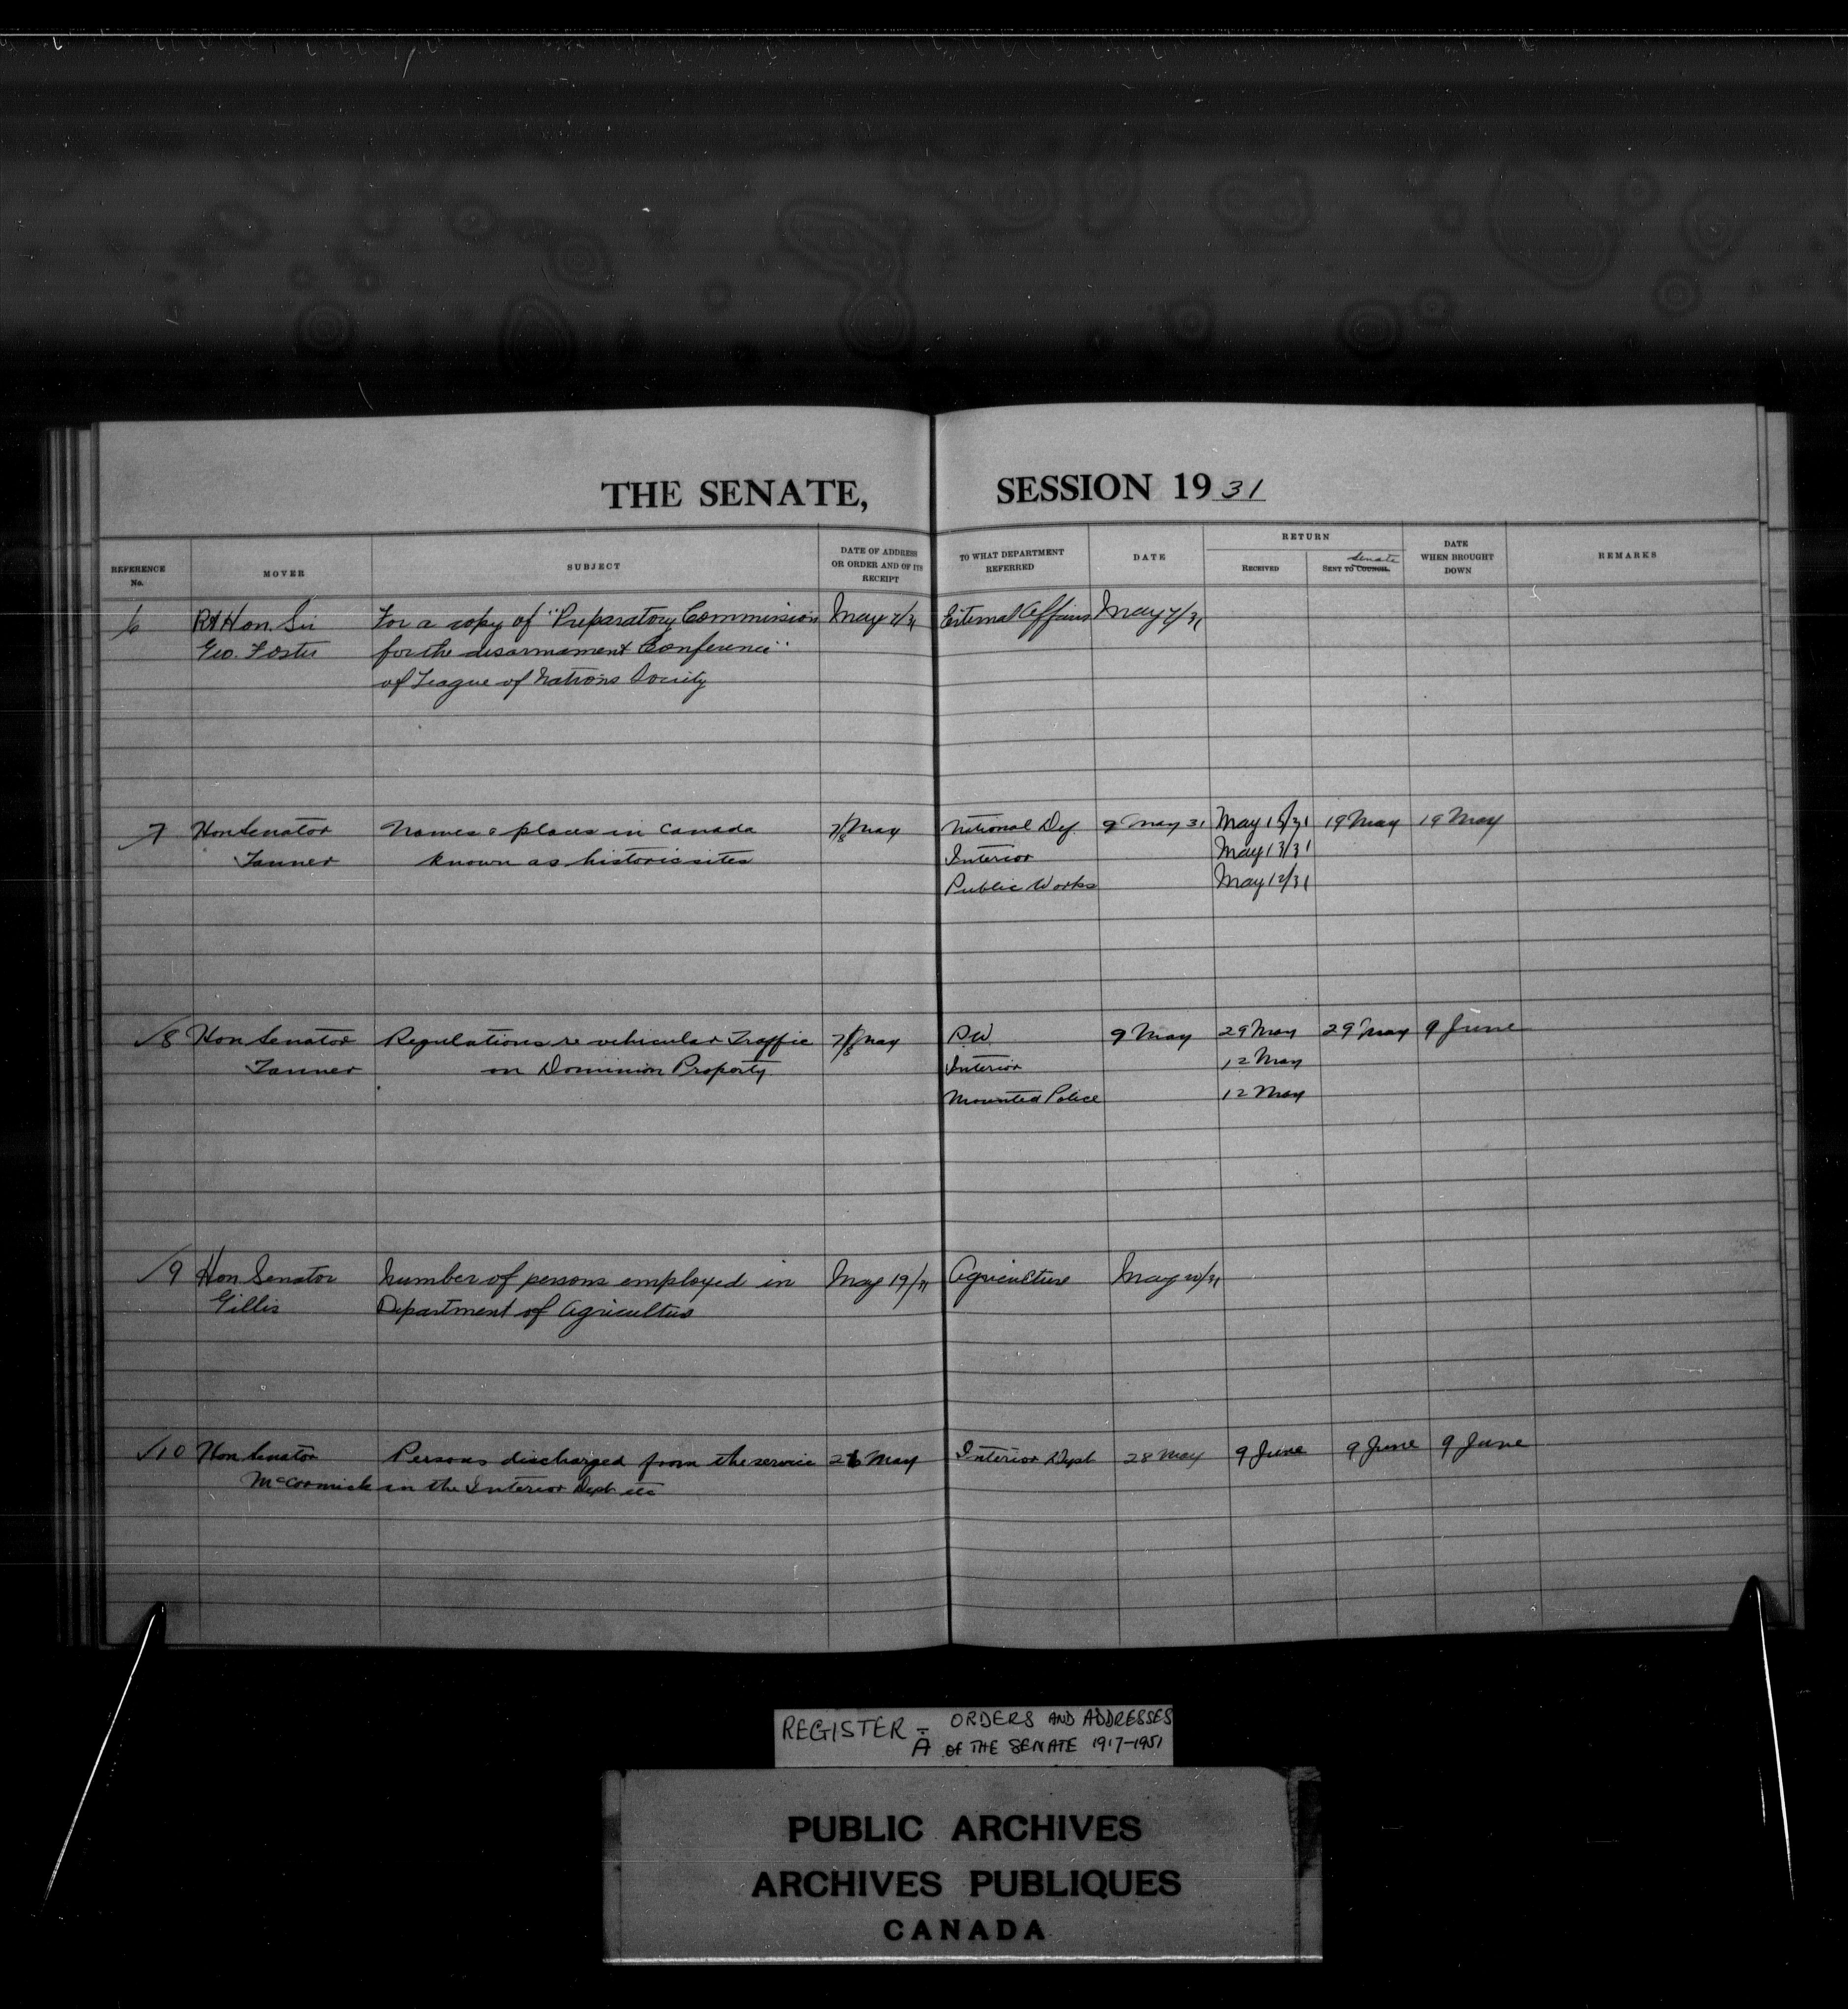 THE SENATE, SESSION 1931
REFERENCE No. MOVER SUBJECT DATE OF ADDRESS OR ORDER AND OF ITS RECEIPT TO WHAT DEPARTMENT REFERRED DATE RETURN RECEIVED SENT TO COUNCIL Senate DATE WHEN BROUGHT DOWN REMARKS
6 Rt Hon. Sir For a copy of "Preparatory Commission May 7/31 External Affairs May 7/31
Geo. Foster for the disarmament Conference"
of League of Nations Society
7 Hon Senator Names & places in Canada 7/8 May National Def 9 May 31 May 15/31 19 May 19 May
Tanner known as historic sites Interior May 13/31
Public Works May 12/31
8 Hon Senator Regulations re vehicular Traffic 7/8 May P.W. 9 May 29 May 29 May 9 June
Tanner on Dominion Property Interior 12 May
Mounted Police 12 May
9 Hon. Senator Number of persons employed in May 19/31 Agriculture May 20/31
Gillis Department of Agriculture
10 Hon Senator Persons discharged from the service 26 May Interior Dept 28 May 9 June 9 June 9 June
McCormick in the Interior Dept etc
REGISTER - ORDERS AND ADDRESSES
A OF THE SENATE 1917-1951
PUBLIC ARCHIVES
ARCHIVES PUBLIQUES
CANADA